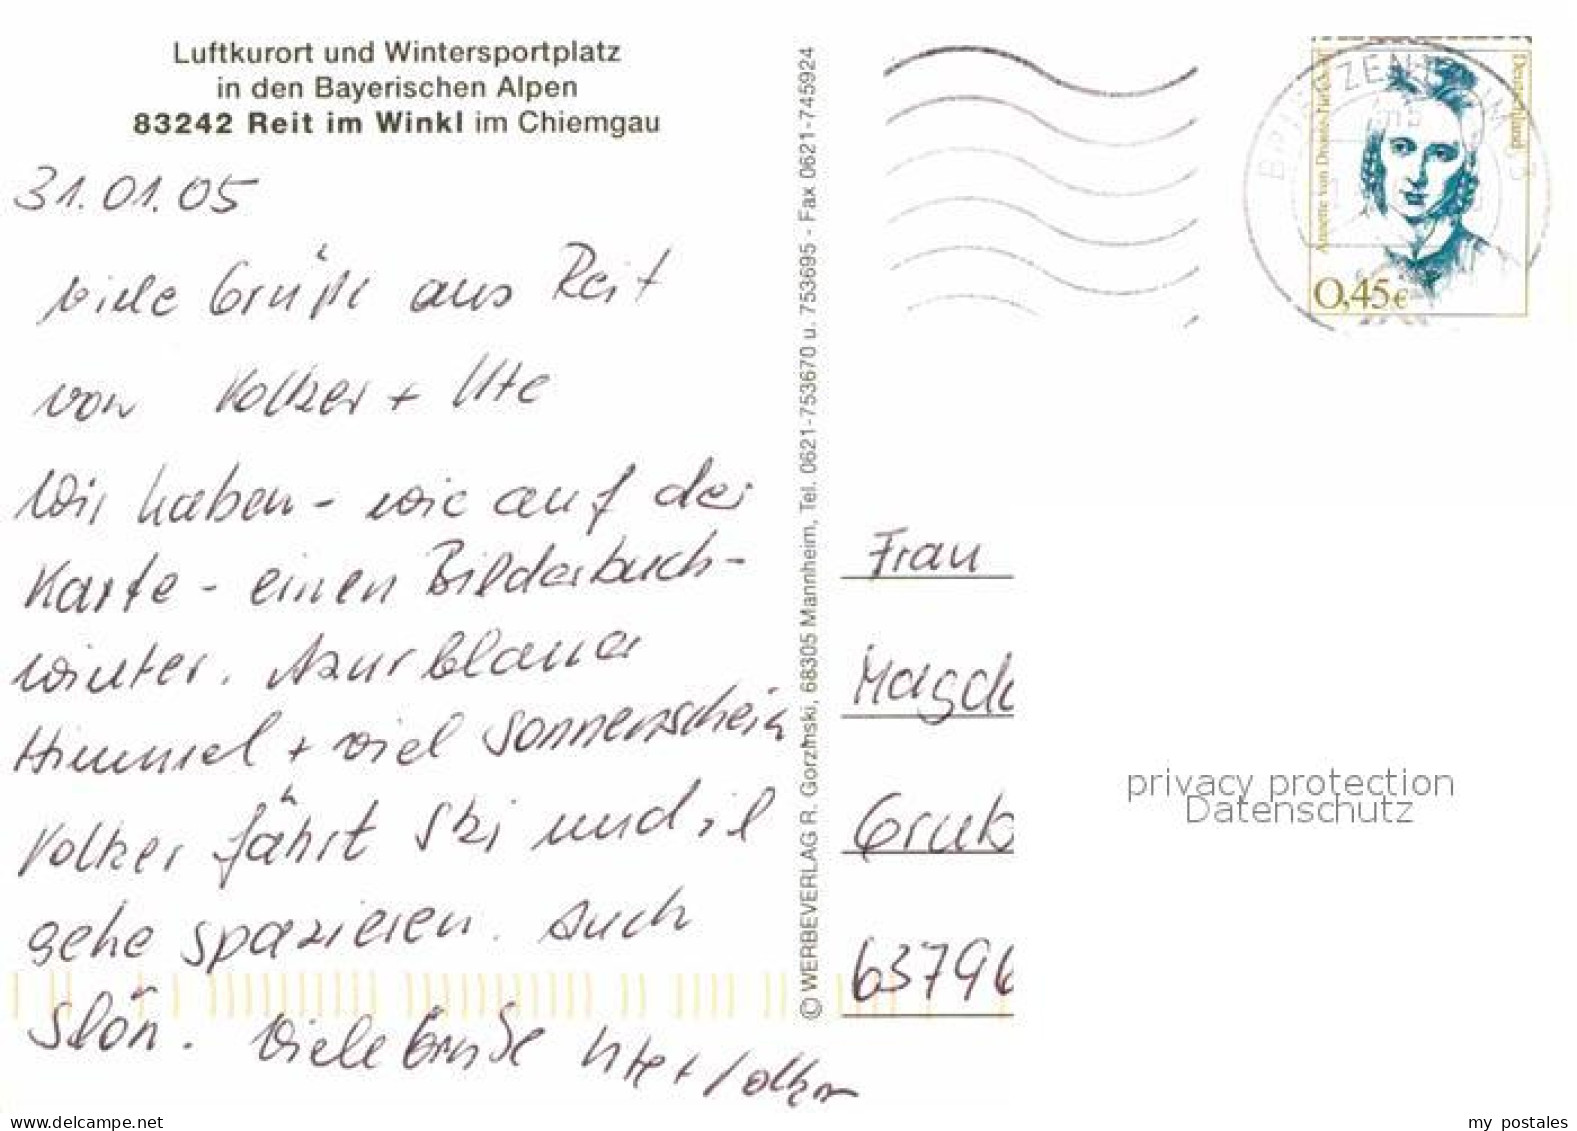 Luftkurort und Wintersportplatz
in den Bayerischen Alpen
83242 Reit im Winkl im Chiemgau
31.01.05
Viele Grüße aus Reit
von Volker + Ute
Wir haben - wie auf der
Karte - einen Bilderbuch-
winter. Azurblauer
Himmel + viel Sonnenschein
Volker fährt Ski und ich
gehe spazieren. Auch
schön. Viele Grüße Ute + Volker
© WERBEVERLAG R. Gorzinski, 68305 Mannheim, Tel. 0621-753670 u. 753695 - Fax 0621-745924
Deutschland
Annette von Droste-Hülshoff
0,45€
BRIEFZENTRUM
Frau
Magda
Grub
63796
privacy protection
Datenschutz
www.delcampe.net
my_postales